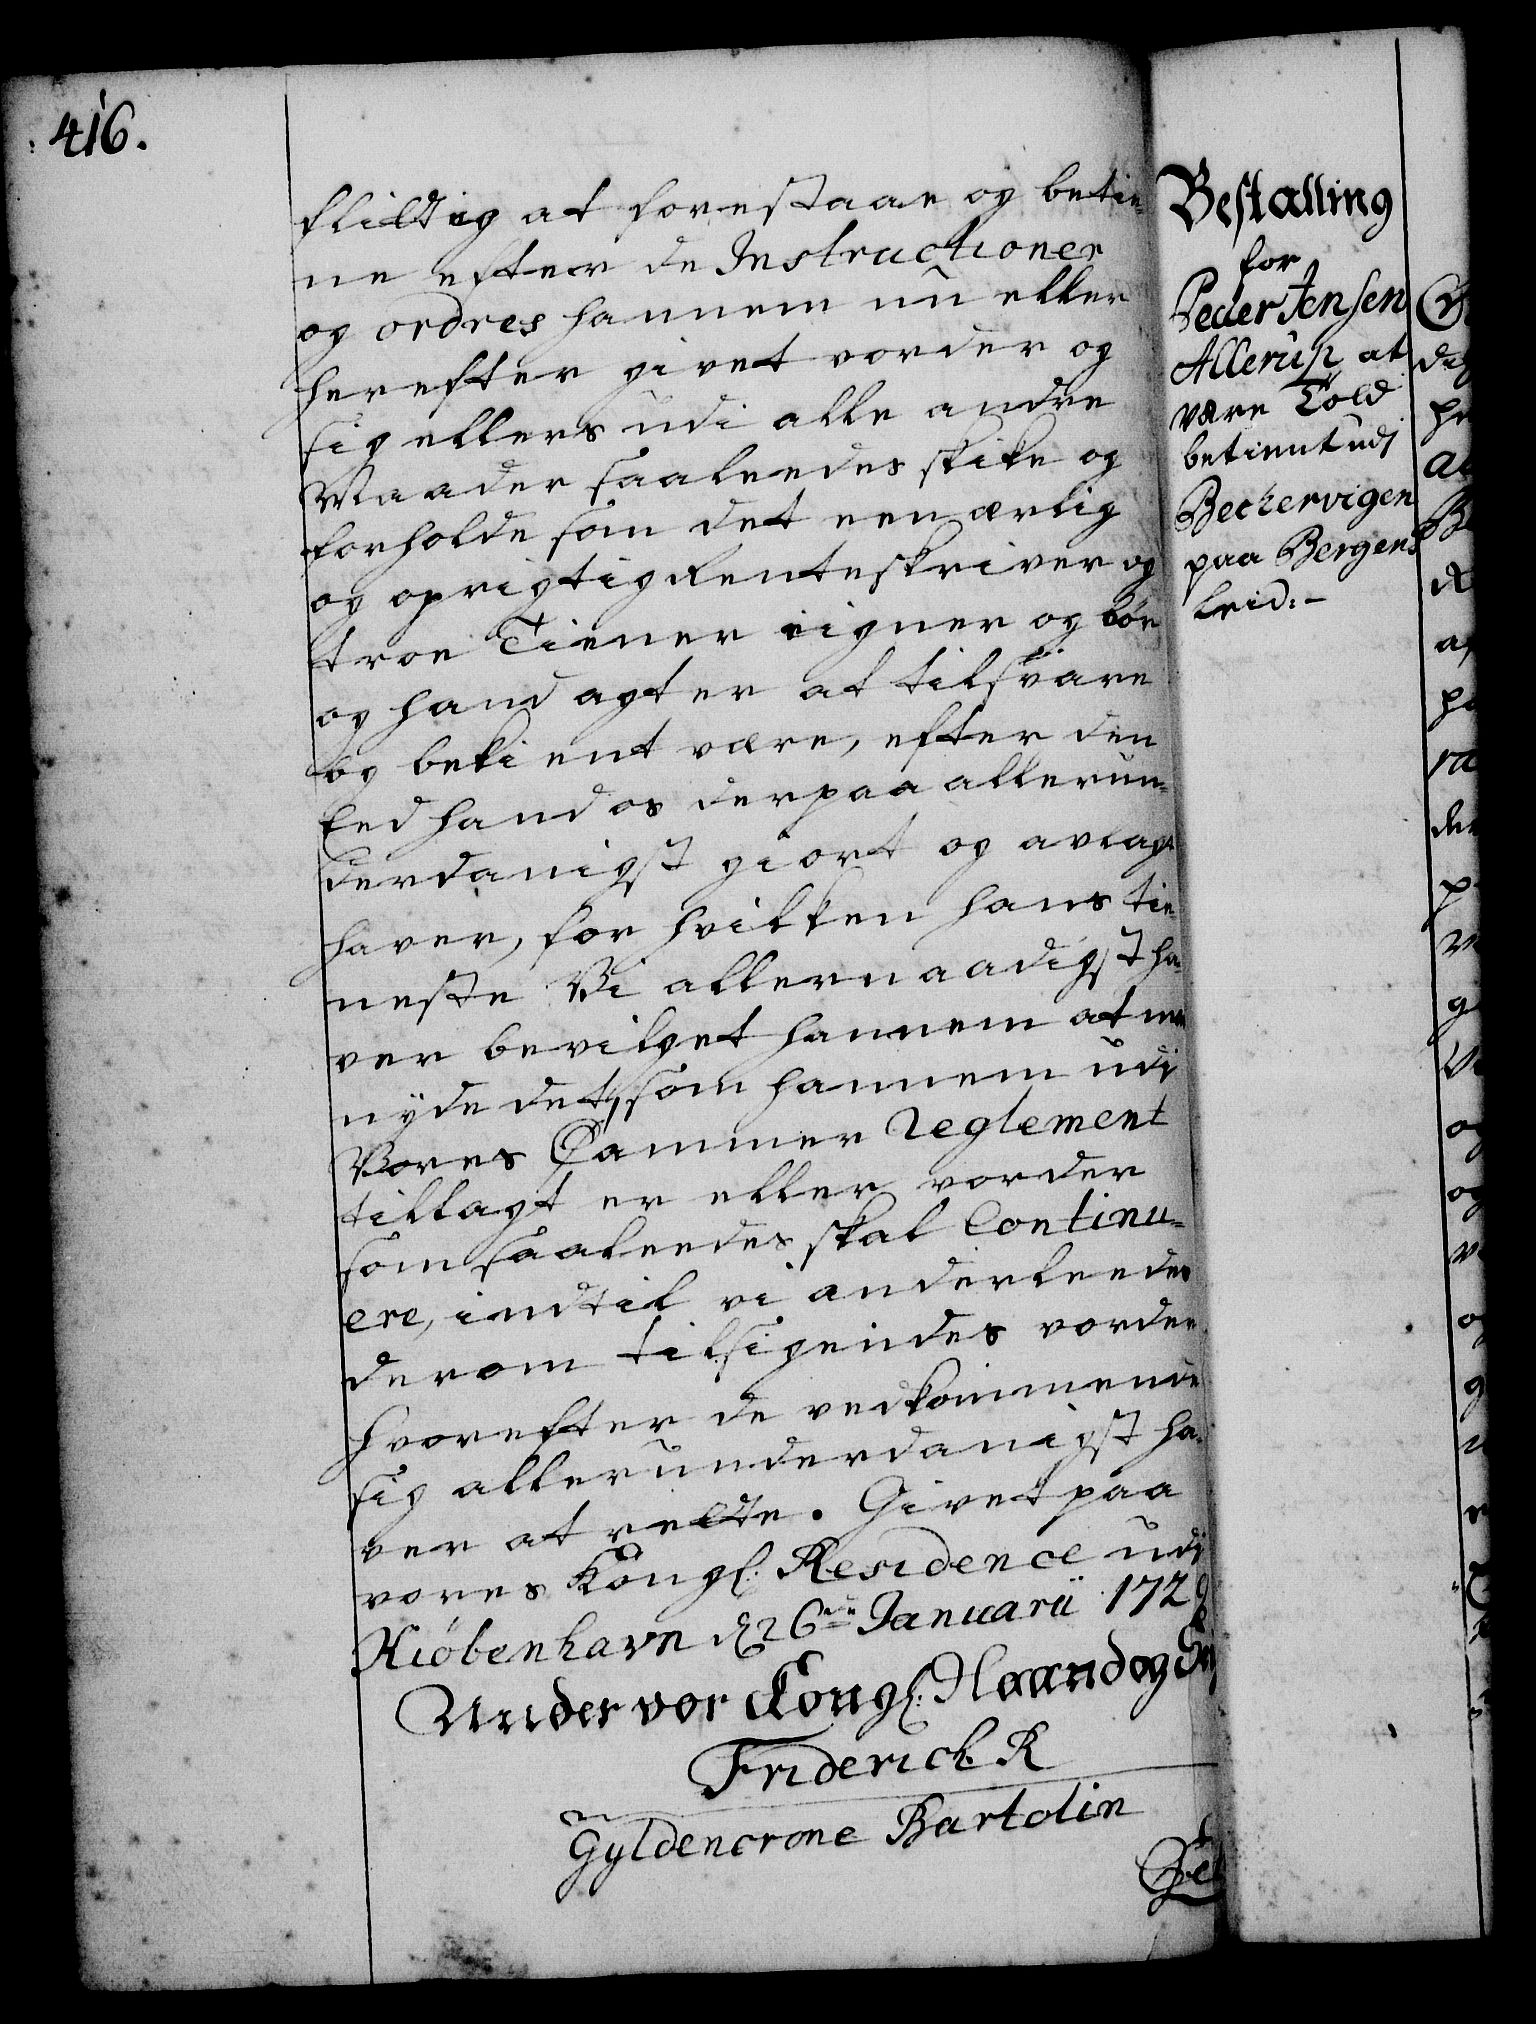 416.
flittig at forestaae og betie-
ne efter de Instructioner
og ordres hannem nu eller
herefter givet vorder og
sig ellers udi alle andre
Maader saaleedes skike og
forholde som det een ærlig
og oprigtig Renteskriver og
troe Tiener eigner og bör
og hand agter at tilsvare
og bekient være, efter den
Eed hand os derpaa allerun-
derdanigst giort og avlagt
haver, for hvilken hans tie-
neste Vi allernaadigst ha-
ver bevilget hannem at maa
nyde det, som hannem udi
Vores Cammer Reglement
tillagt er eller vorder
som saaleedes skal Continu-
ere, indtil vi anderleedes
derom tilsigendes vorder
hvorefter de vedkommende
sig allerunderdanigst ha-
ver at rette. Givet paa
vores Kongl: Residence udi
Kiöbenhavn d 26de Januarii 172
Under vor Kongl: Haand og
Friderich R
Gyldencrone Bartolin
Bestalling
for
Peder Jensen
Allerup at
være Told
betient udj
Bechervigen
paa Bergens
leid:-